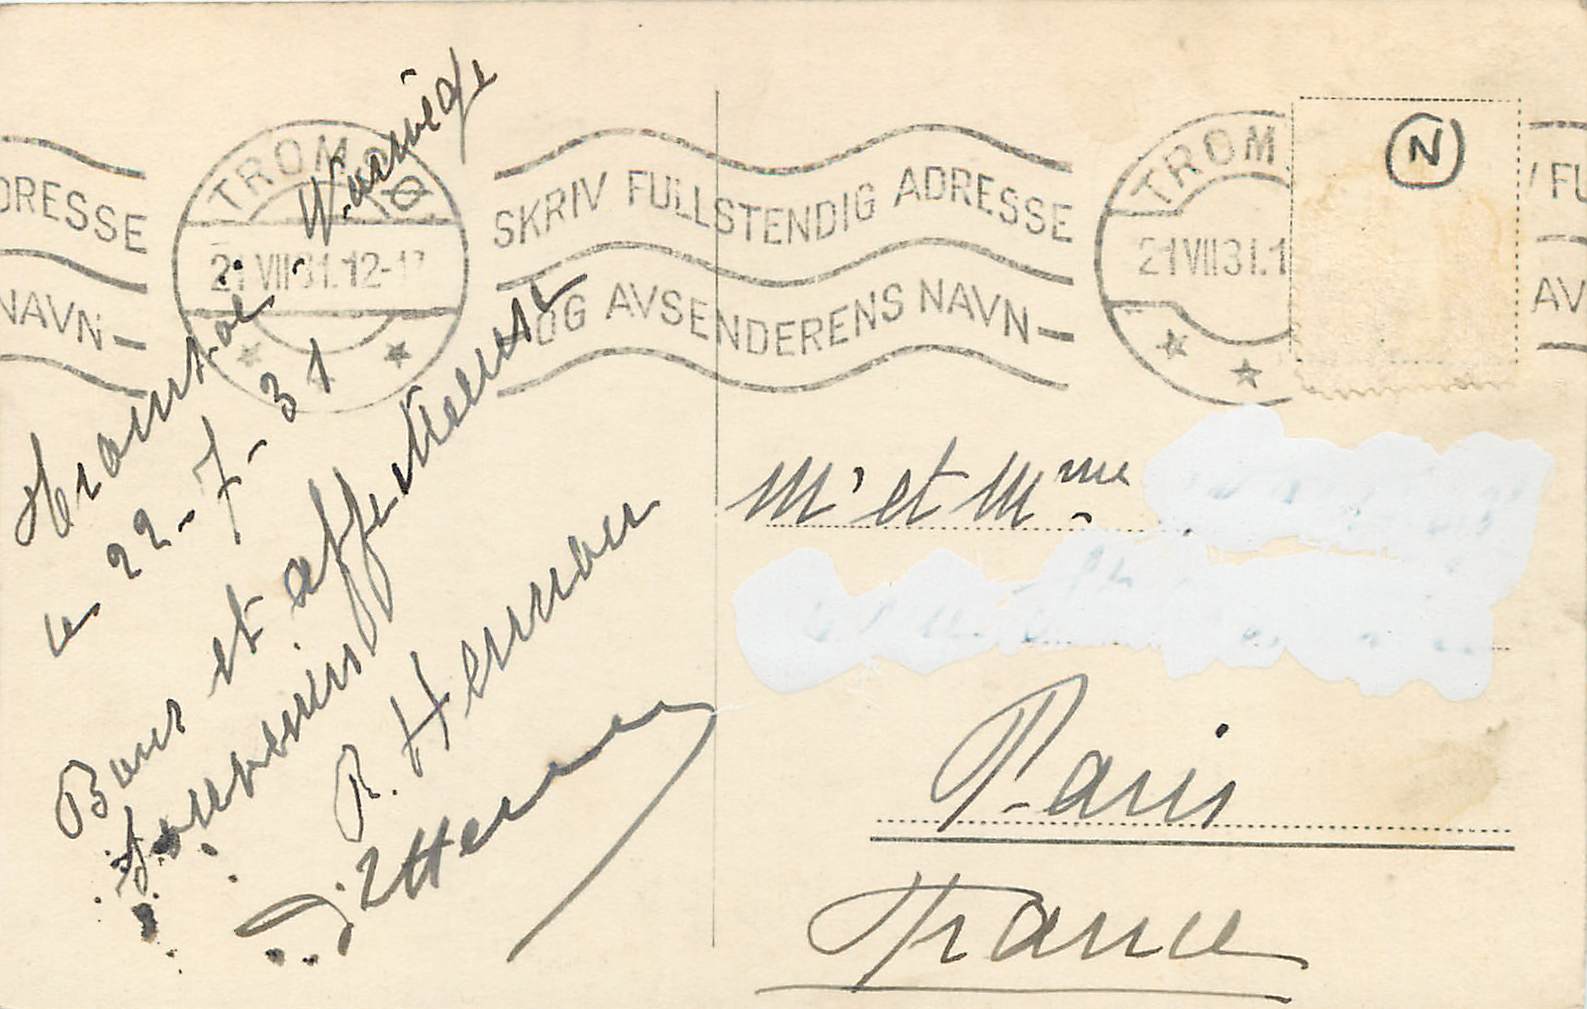 DRESSE
NAVN-
TROMSØ
21 VII 31.12-
SKRIV FULLSTENDIG ADRESSE
OG AVSENDERENS NAVN-
TROM
21 VII 31.1
FU
AV
N
Norvège
le 22-7-31
Bons et affectueux
souvenirs
R. Hennou
Mr et Mme
Paris
France